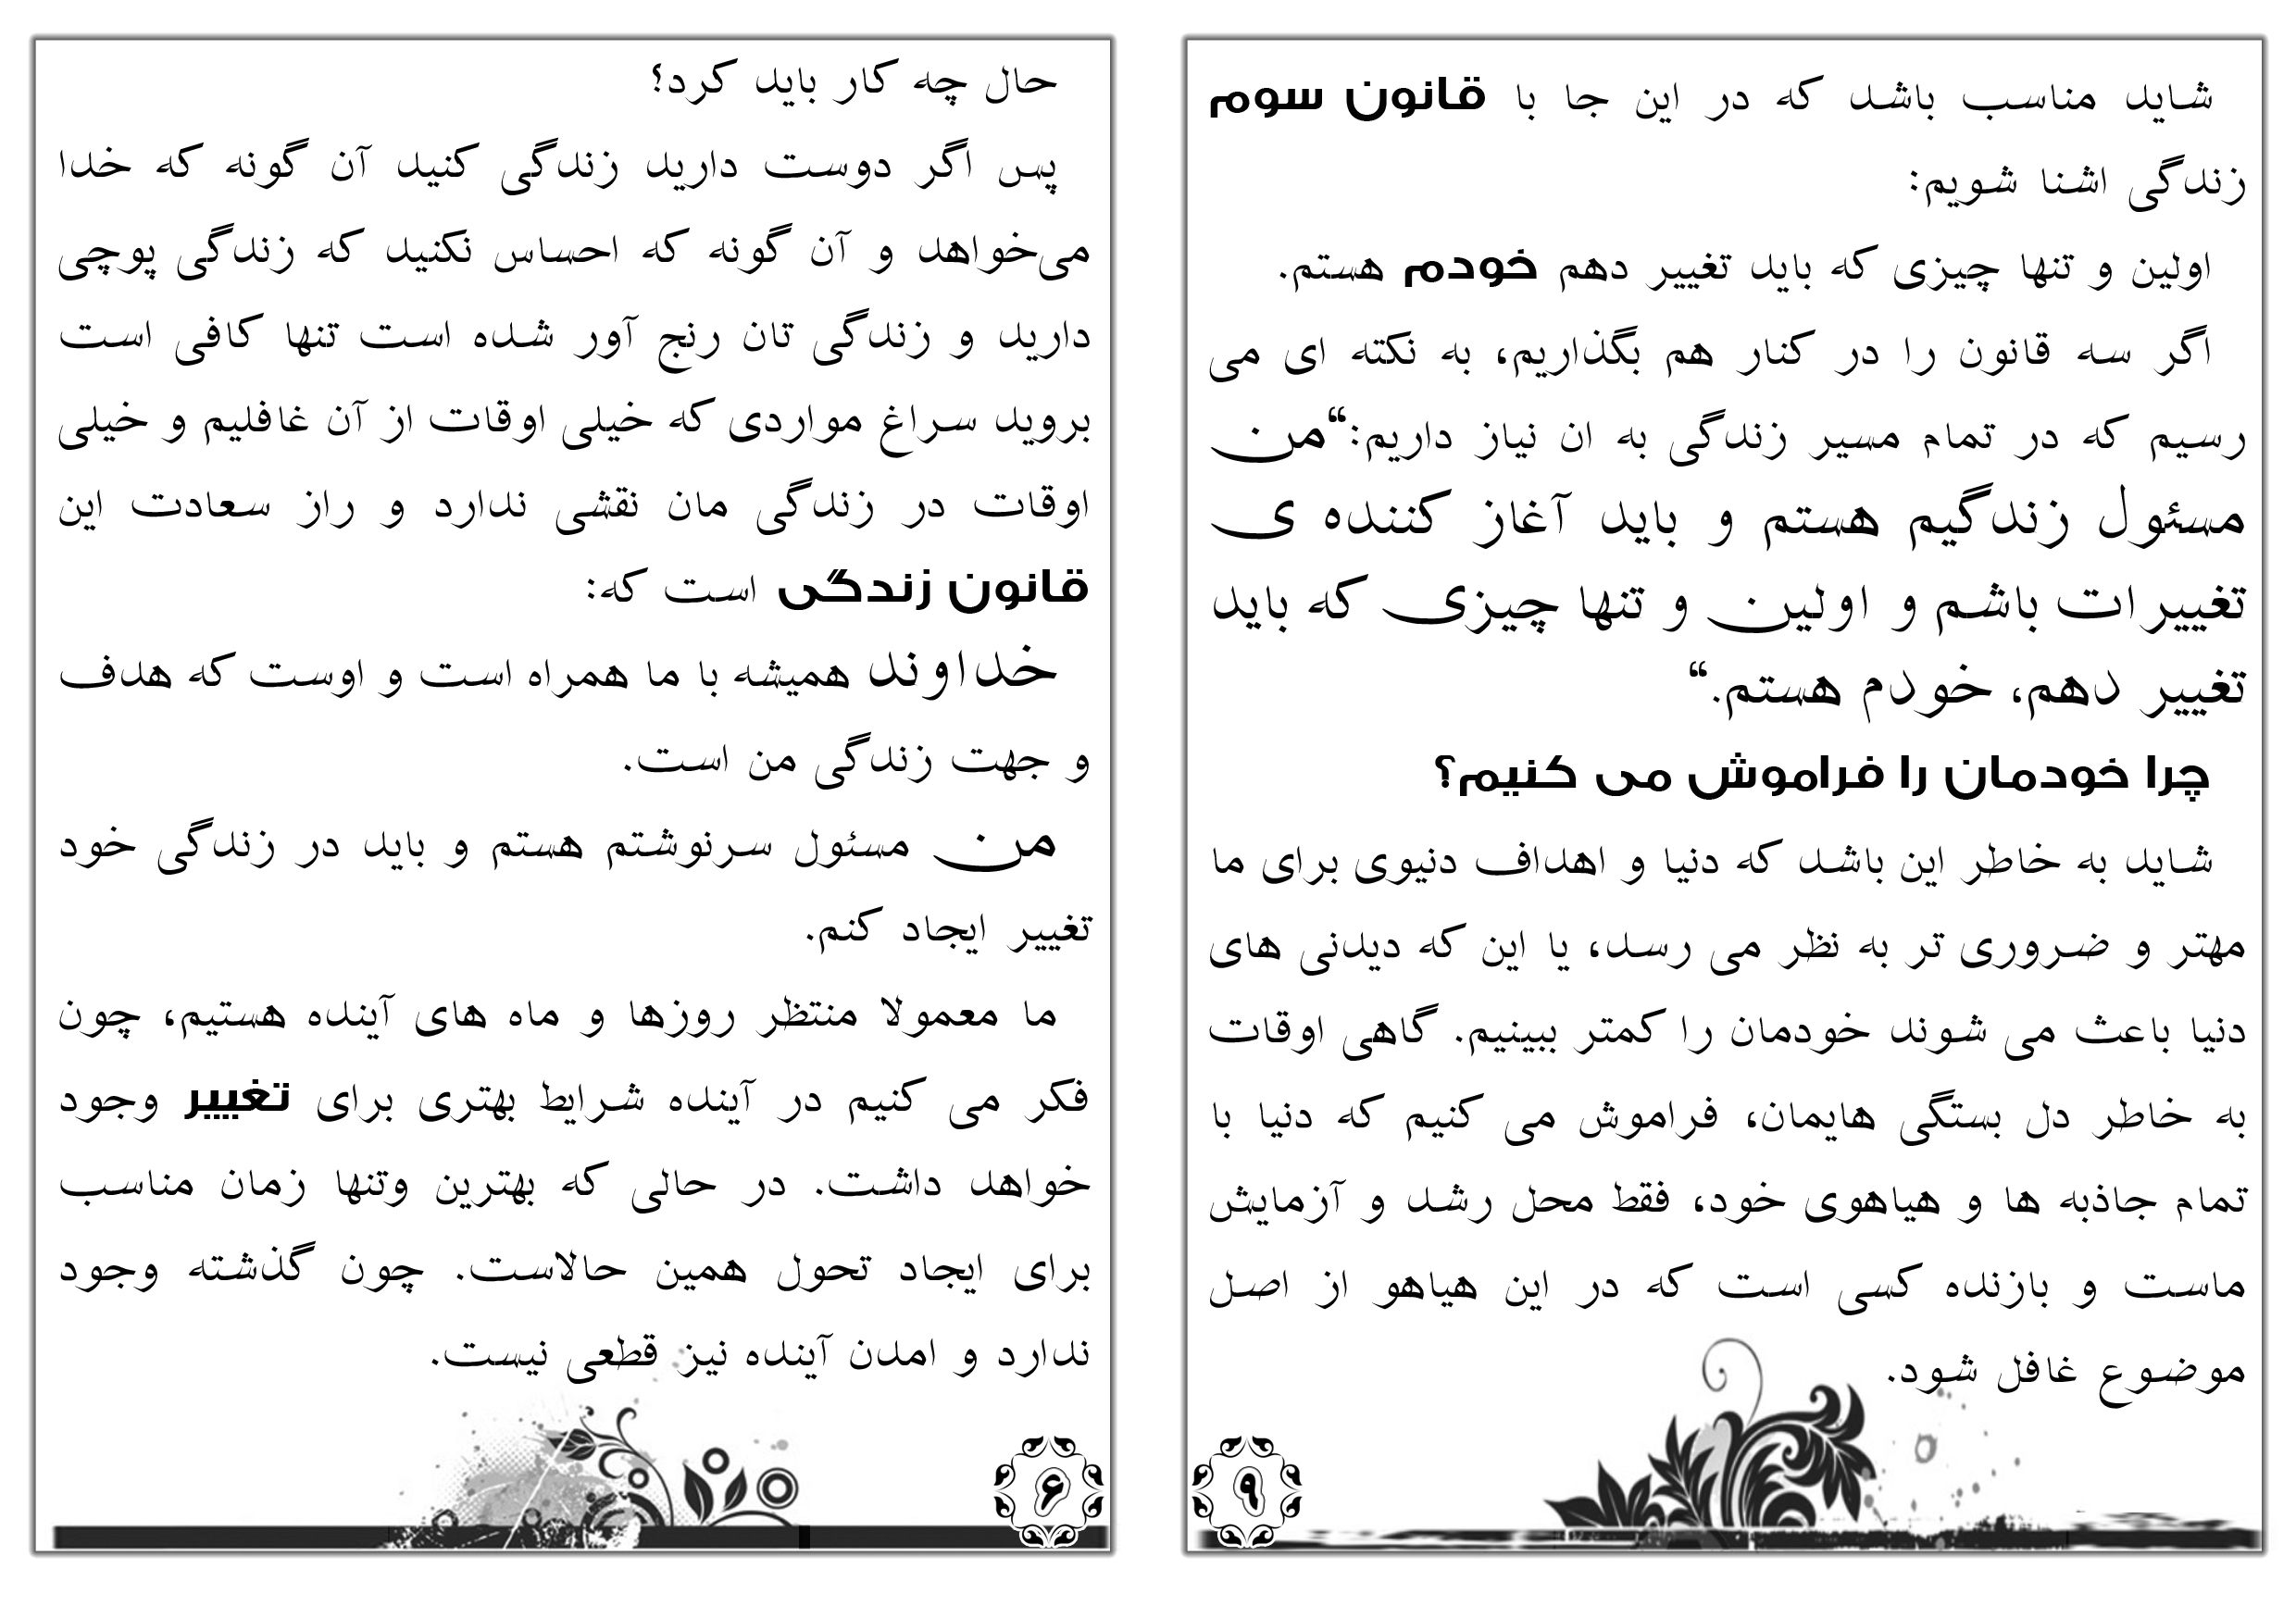 شاید مناسب باشد که در این جا با قانون سوم
زندگی اشنا شویم:
اولین و تنها چیزی که باید تغییر دهم خودم هستم.
اگر سه قانون را در کنار هم بگذاریم، به نکته ای می
رسیم که در تمام مسیر زندگی به ان نیاز داریم:“من
مسئول زندگیم هستم و باید آغاز کننده ی
تغییرات باشم و اولین و تنها چیزی که باید
تغییر دهم، خودم هستم.“
چرا خودمان را فراموش می کنیم؟
شاید به خاطر این باشد که دنیا و اهداف دنیوی برای ما
مهتر و ضروری تر به نظر می رسد، یا این که دیدنی های
دنیا باعث می شوند خودمان را کمتر ببینیم. گاهی اوقات
به خاطر دل بستگی هایمان، فراموش می کنیم که دنیا با
تمام جاذبه ها و هیاهوی خود، فقط محل رشد و آزمایش
ماست و بازنده کسی است که در این هیاهو از اصل
موضوع غافل شود.
۹
حال چه کار باید کرد؟
پس اگر دوست دارید زندگی کنید آن گونه که خدا
می‌خواهد و آن گونه که احساس نکنید که زندگی پوچی
دارید و زندگی تان رنج آور شده است تنها کافی است
بروید سراغ مواردی که خیلی اوقات از آن غافلیم و خیلی
اوقات در زندگی مان نقشی ندارد و راز سعادت این
قانون زندگی است که:
خداوند همیشه با ما همراه است و اوست که هدف
و جهت زندگی من است.
من مسئول سرنوشتم هستم و باید در زندگی خود
تغییر ایجاد کنم.
ما معمولا منتظر روزها و ماه های آینده هستیم، چون
فکر می کنیم در آینده شرایط بهتری برای تغییر وجود
خواهد داشت. در حالی که بهترین وتنها زمان مناسب
برای ایجاد تحول همین حالاست. چون گذشته وجود
ندارد و امدن آینده نیز قطعی نیست.
۶